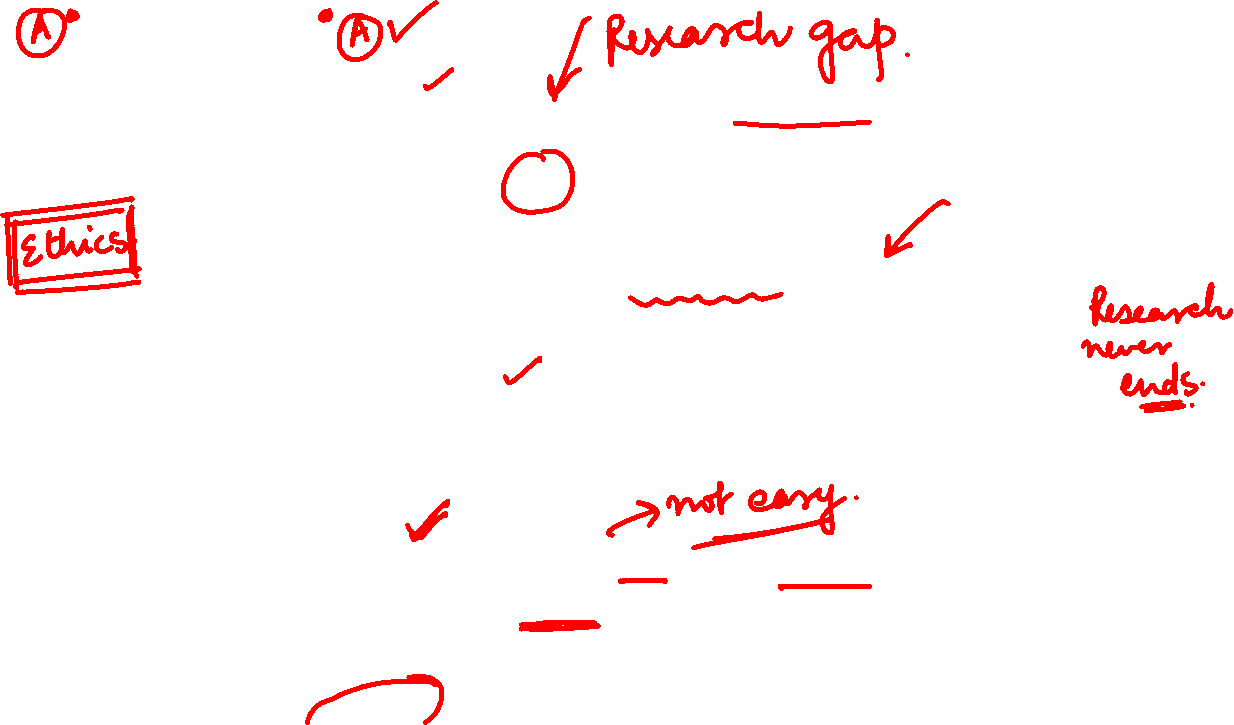 A
A
Research gap.
Ethics
Research
never
ends.
not easy.